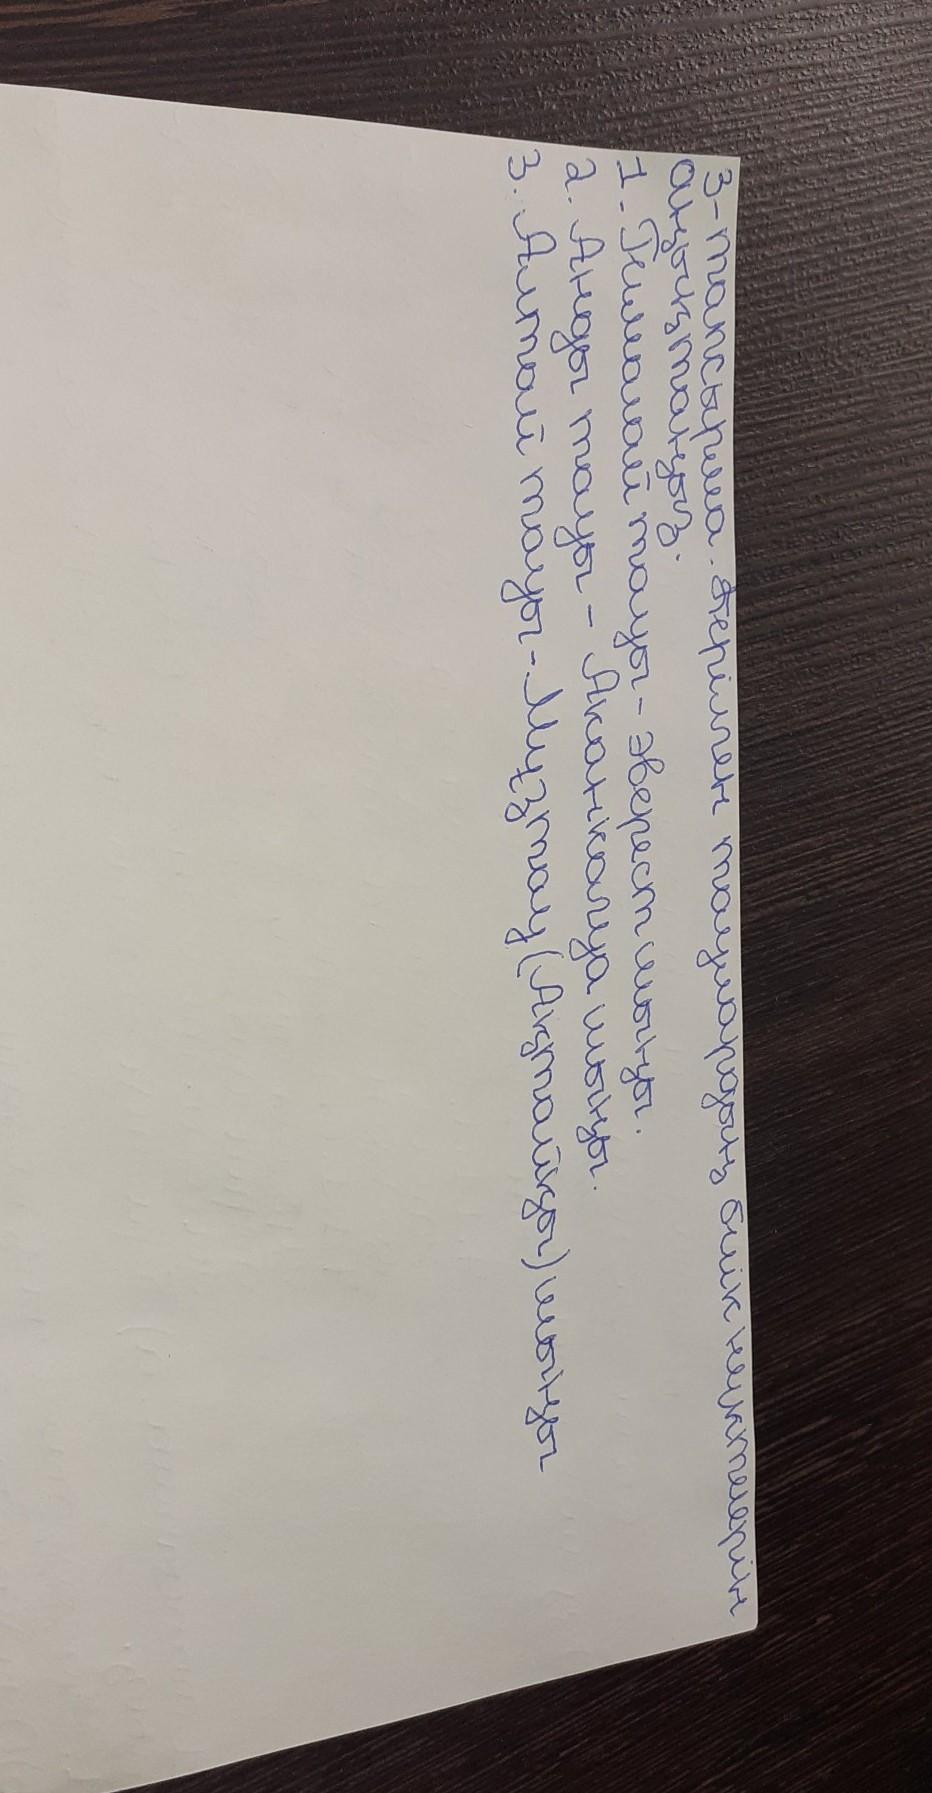 3-тапсырма. Берілген таулардың биік нүктелерін
анықтаңыз.
1. Гималай тауы - Эверест шыңы.
2. Анды тауы - Аконкагуа шыңы.
3. Алтай тауы - Мұзтау (Ақтайқы) шыңы